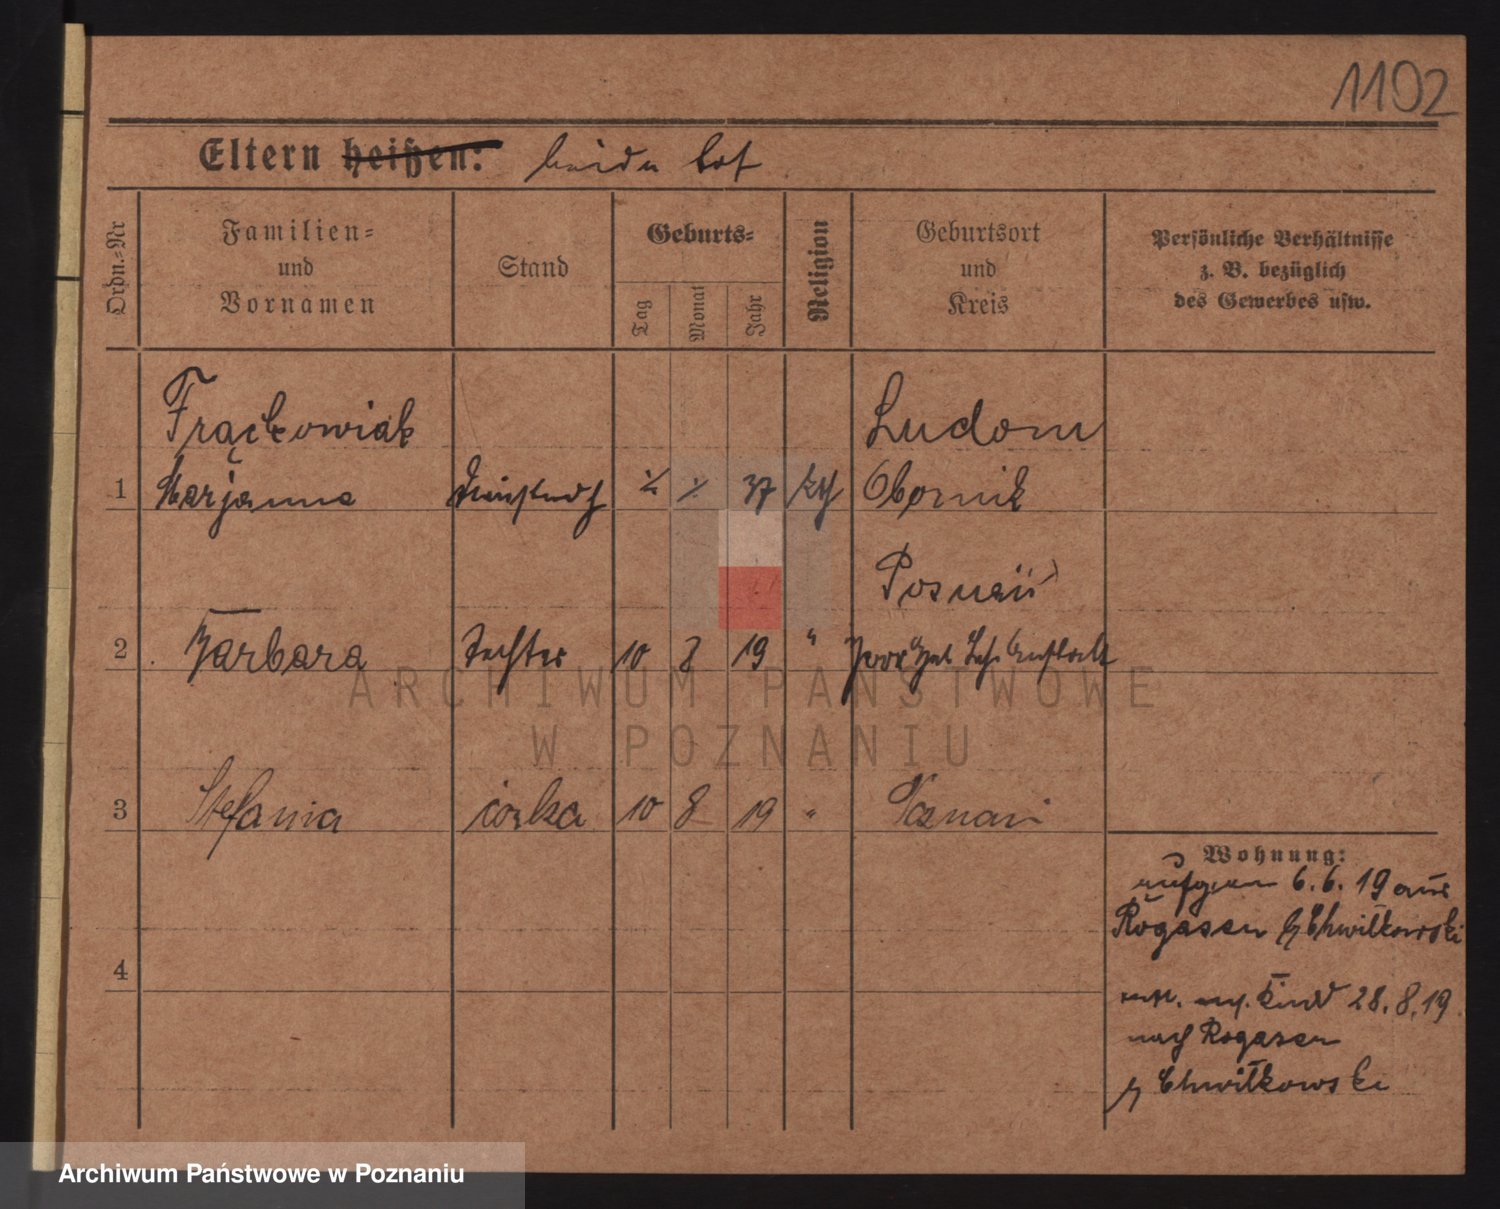 1102
Eltern heißen: beide tot
Ordn.-Nr
Familien-
und
Vornamen
Stand
Geburts-
Tag
Monat
Jahr
Religion
Geburtsort
und
Kreis
Persönliche Verhältnisse
z. B. bezüglich
des Gewerbes usw.
Frąckowiak
Ludom
1 Marjanna 37 kth Obornik
Posnań
2 Barbara Tochter 10 8 19 "
3 Stefania córka 10 8 19 " Poznań
Wohnung:
6.6.19 aus
Rogasen Chwiłkowski
4
Kind 28.8.19
nach Rogasen
Chwiłkowski
ARCHIWUM PAŃSTWOWE
W POZNANIU
Archiwum Państwowe w Poznaniu